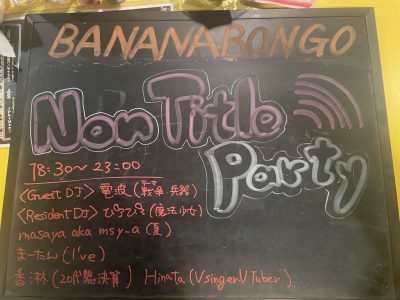 BANANABONGO
Non Title
Party
18:30～23:00
<Guest DJ> 電波 (戦争兵器)
<Resident DJ> ぴろぴろ (魔法少女)
masaya aka msy-a (夏)
まーたん (I've)
香淋 (20代総決算) Hinata (Vsinger VTuber)